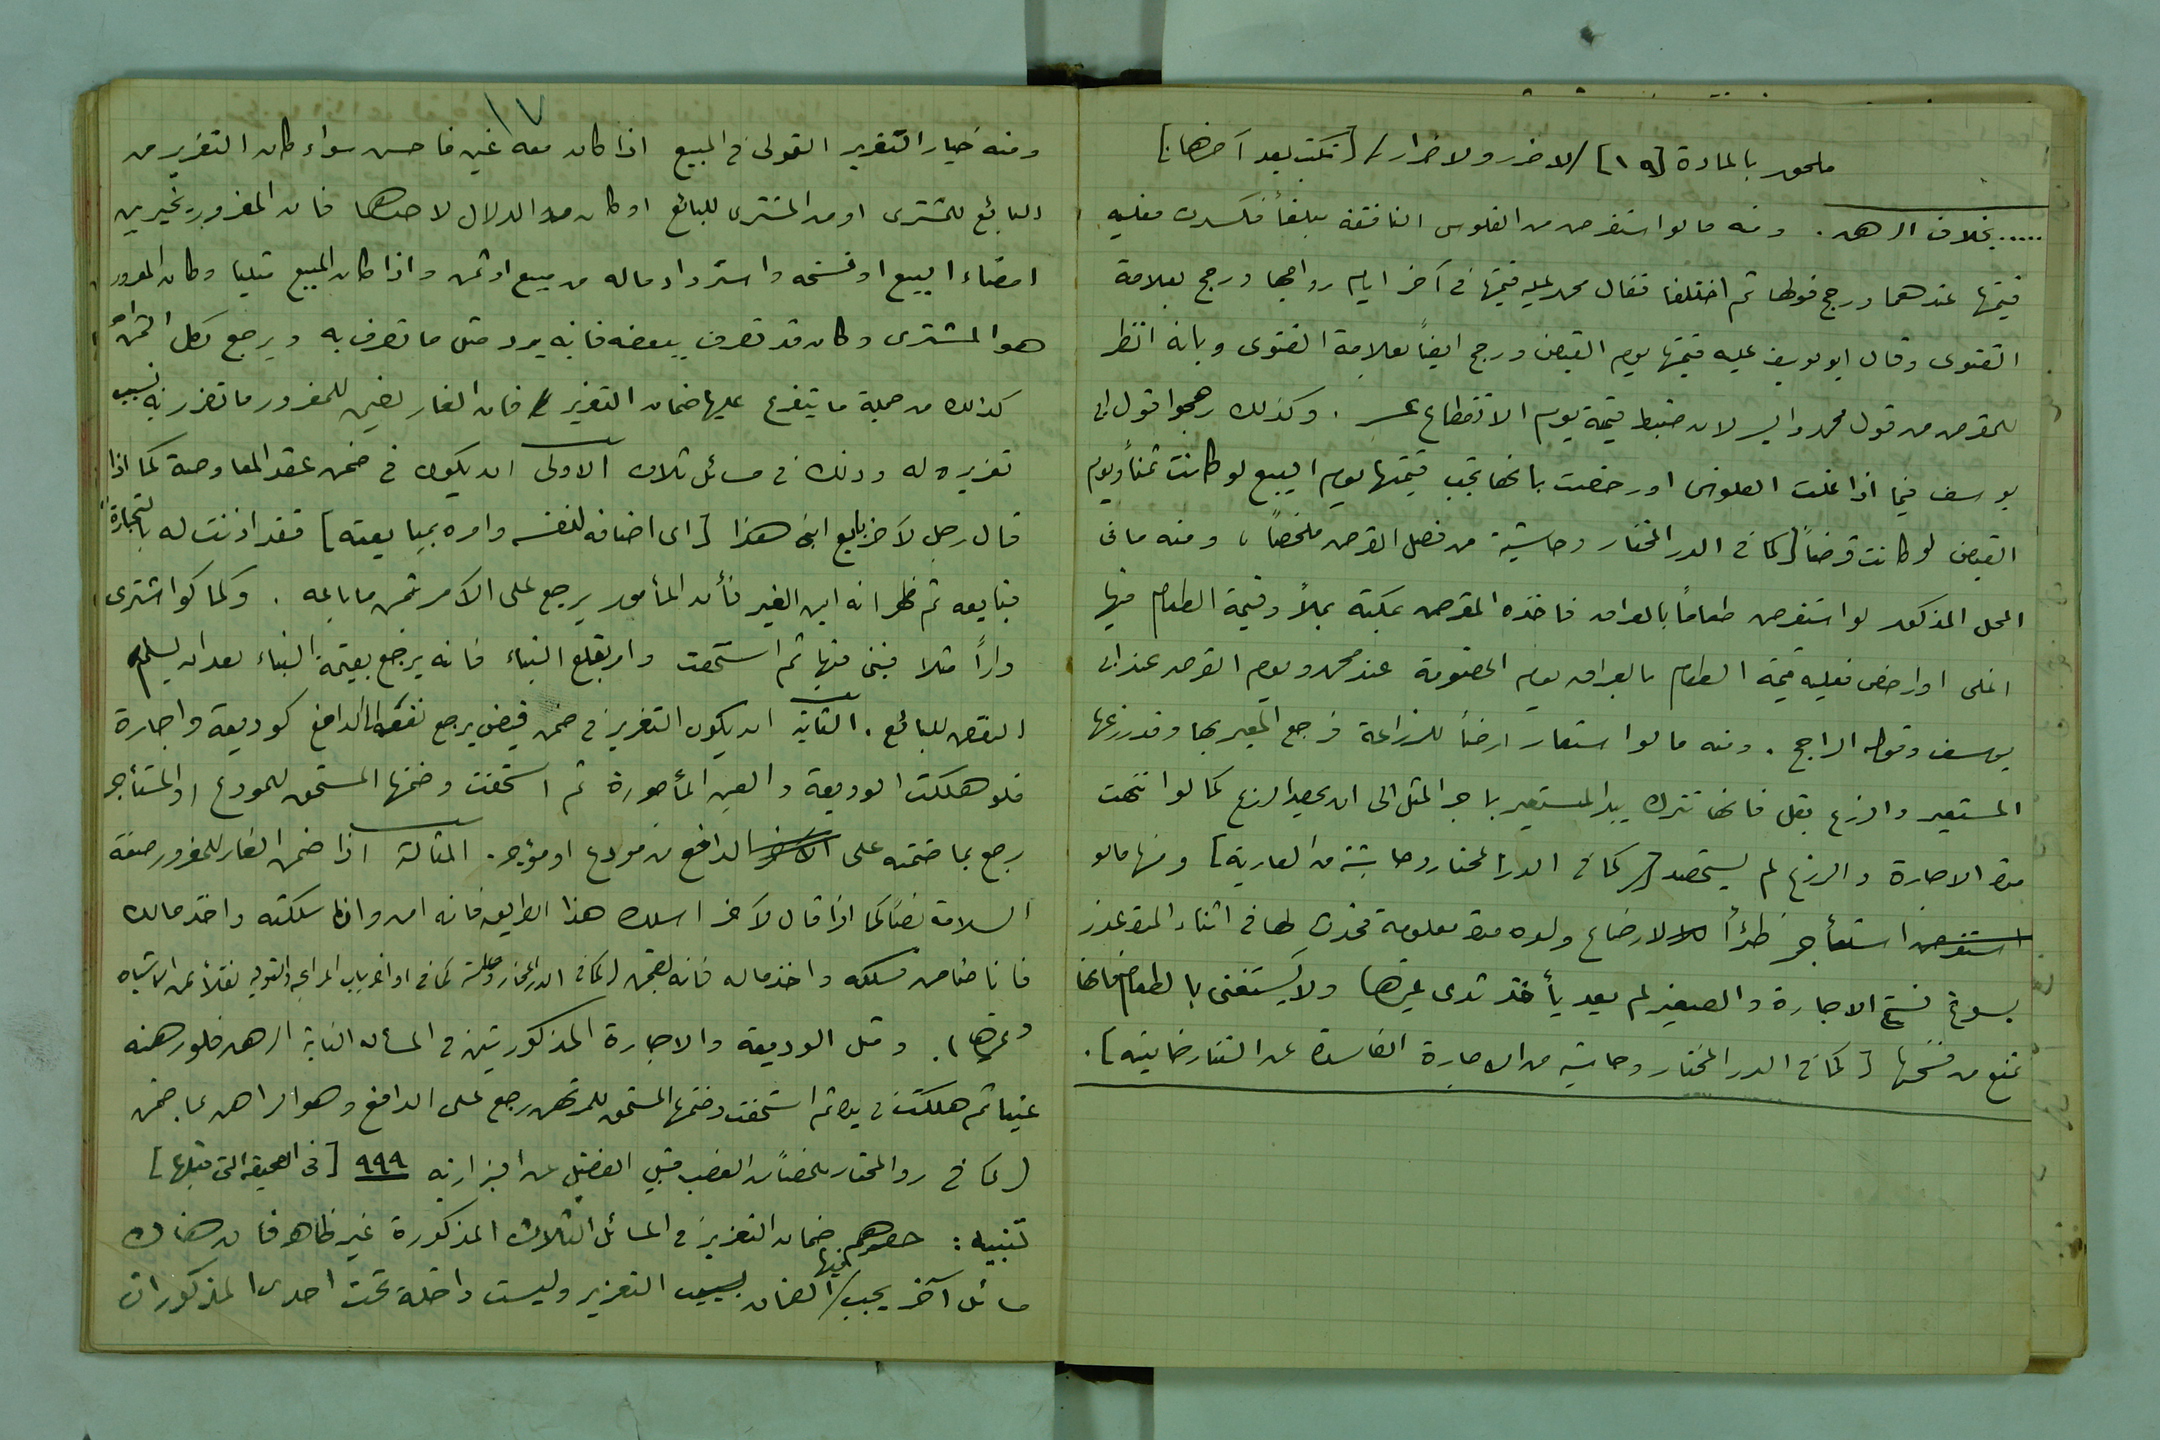 ملحق بالمادة [١٩] /لا ضرر ولا ضرار/ [تكتب بعد آخرها]
..... بخلاف الرهن . ومنه ما لو استقرض من الفلوس النافقة مبلغاً فكسدت فعليه
قيمتها عندهما ورجح قولهما ثم اختلفا فقال محمد عليه قيمتها في آخر ايام رواجها ورجح بعلامة
الفتوى وقال ابو يوسف عليه قيمتها يوم القبض ورجح ايضاً بعلامة الفتوى وبانه انظر
للمقرض من قول محمد وايسر لان ضبط قيمة يوم الانقطاع عسر . وكذلك رجحوا قول ابي
يوسف فيما اذا غلت الفلوس او رخصت بانها تجب قيمتها يوم البيع لو كانت ثمناً ويوم
القبض لو كانت قرضاً [كما في الدر المختار وحاشيته من فصل القرض ملخصاً] ومنه ما في
المحل المذكور لو استقرض طعاماً بالعراق فاخذه المقرض بمكة مثلاً وقيمة الطعام فيها
اغلى او ارخص فعليه قيمة الطعام بالعراق يوم الخصومة عند محمد ويوم القرض عند ابي
يوسف وقوله الراجح . ومنه ما لو استعار ارضاً للزراعة فرجع المعير بها وقد زرعها
المستعير والزرع بقل فانها تترك بيد المستعير باجر المثل الى ان يحصد الزرع كما لو انتهت
مدة الاجارة والزرع لم يستحصد [كما في الدر المختار وحاشيته من العارية] ومنها ما لو
استقرض استأجر ظئراً لارضاع ولده مدة معلومة فحدث لها في اثناء المدة عذر
يسوغ فسخ الاجارة والصغير لم يعد يأخذ ثدي غيرها ولا يستغني بالطعام فانها
تمنع من فسخها [كما في الدر المختار وحاشيته من الاجارة الفاسدة عن التتارخانية] .
١٧
ومنه خيار التغرير القولي في المبيع اذا كان معه غبن فاحش سواء كان التغرير من
البائع للمشتري او من المشتري للبائع او كان من الدلال لاحدهما فان المغرور يخير بين
امضاء البيع او فسخه واسترداد ماله من مبيع او ثمن واذا كان المبيع مثليا وكان المغرور
هو المشتري وكان قد تصرف ببعضه فانه يرد مثل ما تصرف به ويرجع بكل الثمن
كذلك من جملة ما يتفرع عليها ضمان التغرير فان الغار يضمن للمغرور ما تضرر به بسبب
تغريره له وذلك في مسائل ثلاث الاولى ان يكون في ضمن عقد المعاوضة كما اذا
قال رجل لآخر بايع ابني هذا [اي اضافه لنفسه وامره بمبايعته] فقد اذنت له بالتجارة
فبايعه ثم ظهر انه ابن الغير فأن المأمور يرجع على الآمر بثمن ما باعه . وكما لو اشترى
داراً مثلا فبنى فيها ثم استحقت وامر بقلع البناء فانه يرجع بقيمة البناء بعد ان يسلم
النقض للبائع . الثانية ان يكون التغرير في ضمن قبض يرجع نفعه للدافع كوديعة واجارة
فلو هلكت الوديعة والعين المأجورة ثم استحقت وضمنها المستحق للمودع او المستأجر
رجع بما ضمنه على الدافع من مودع او مؤجر . الثالثة اذا ضمن الغار للمغرور صفة
السلامة نصاً كما اذا قال لآخر اسلك هذا الطريق فانه امن وان سلكته واخذ مالك
فانا ضامن فسلكه واخذ ماله فانه يضمن [كما في الدر المختار وحاشيته في اواخر باب المرابحة والتولية نقلاً عن الاشباه
وغيرها] . ومثل الوديعة والاجارة المذكورتين في المسألة الثانية الرهن فلو رهنه
عيناً ثم هلكت في يده ثم استحقت وضمنها المستحق للمرتهن رجع على الدافع وهو الراهن بما ضمن
[كما في رد المحتار ملخصاً من الغصب قبيل الفصل عن البزازية ٩٩٩ [في الصحيفة التي قبلها]
تنبيه : حصرهم ضمان التغرير في المسائل الثلاث المذكورة غير ظاهر فان هناك
مسائل آخر يجب فيها الضمان بسبب التغرير وليست داخلة تحت احدى المذكورات